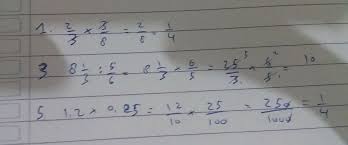 1. 2/3 × 3/8 = 2/8 = 1/4
3 8 1/3 : 5/6 = 8 1/3 × 6/5 = 25 5/3 × 6 2/5 = 10
5. 1.2 × 0.25 = 12/10 × 25/100 = 250/1000 = 1/4